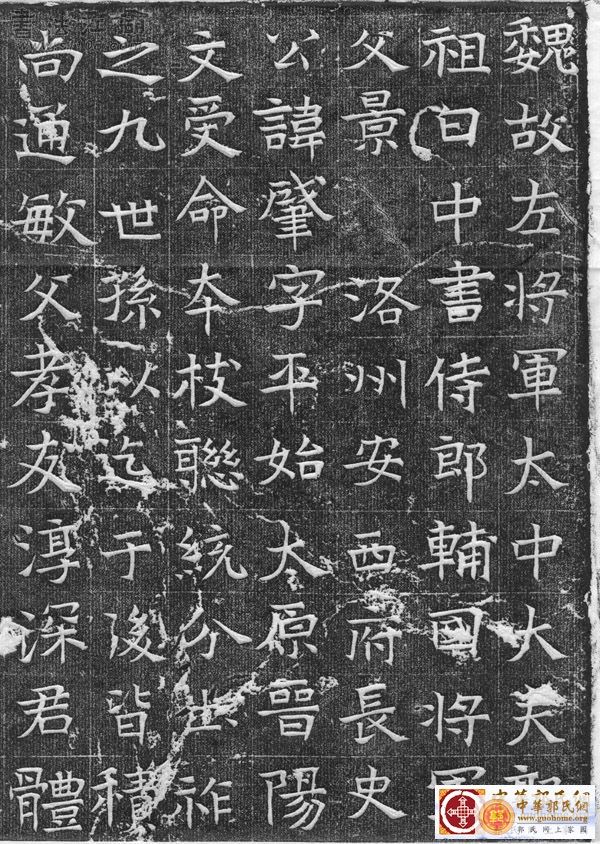 魏故左將軍太中大夫
祖曰中書侍郎輔國將軍
父景 洛州安西府長史
公諱肇字平始太原晉陽
文受命夲枝聯統分出祚
之九世孫以迄于後皆積
尚通敏父孝友淳深君體
中華郭氏網
www.guohome.org
郭氏网上家园